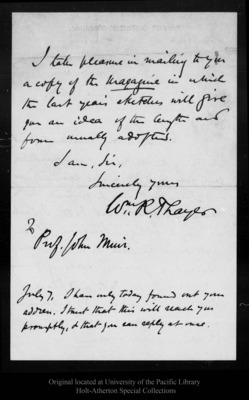 I take pleasure in mailing to you
a copy of the Magazine in which
the last year's sketches will give
you an idea of the length and
form usually adopted.
I am, Sir,
Sincerely yours
Wm. R. Thayer
To
Prof. John Muir.
July 7, I have only today found out your
address. I trust that this will reach you
promptly, & that you can reply at once.
Original located at University of the Pacific Library
Holt-Atherton Special Collections